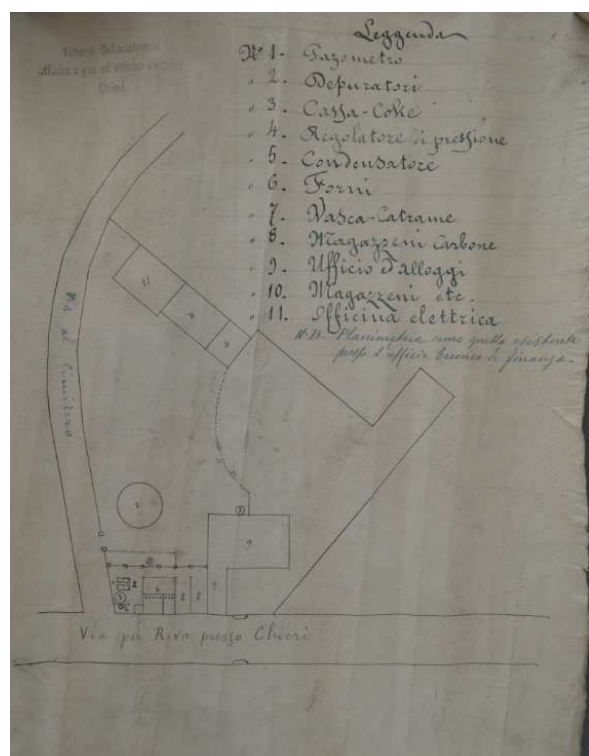 Leggenda
Officina a gas ed officina elettrica
Chieri
No 1. Gazometro
" 2. Depuratori
" 3. Cassa-Coke
" 4. Regolatore di pressione
" 5. Condensatore
" 6. Forni
" 7. Vasca-Catrame
" 8. Magazzeni Carbone
" 9. Ufficio ed alloggi
" 10. Magazzeni etc.
" 11. Officina elettrica
N.B. Planimetria come quella esistente
presso l'ufficio tecnico di finanza.
11
Via al Cimitero
9
Via per Riva presso Chieri